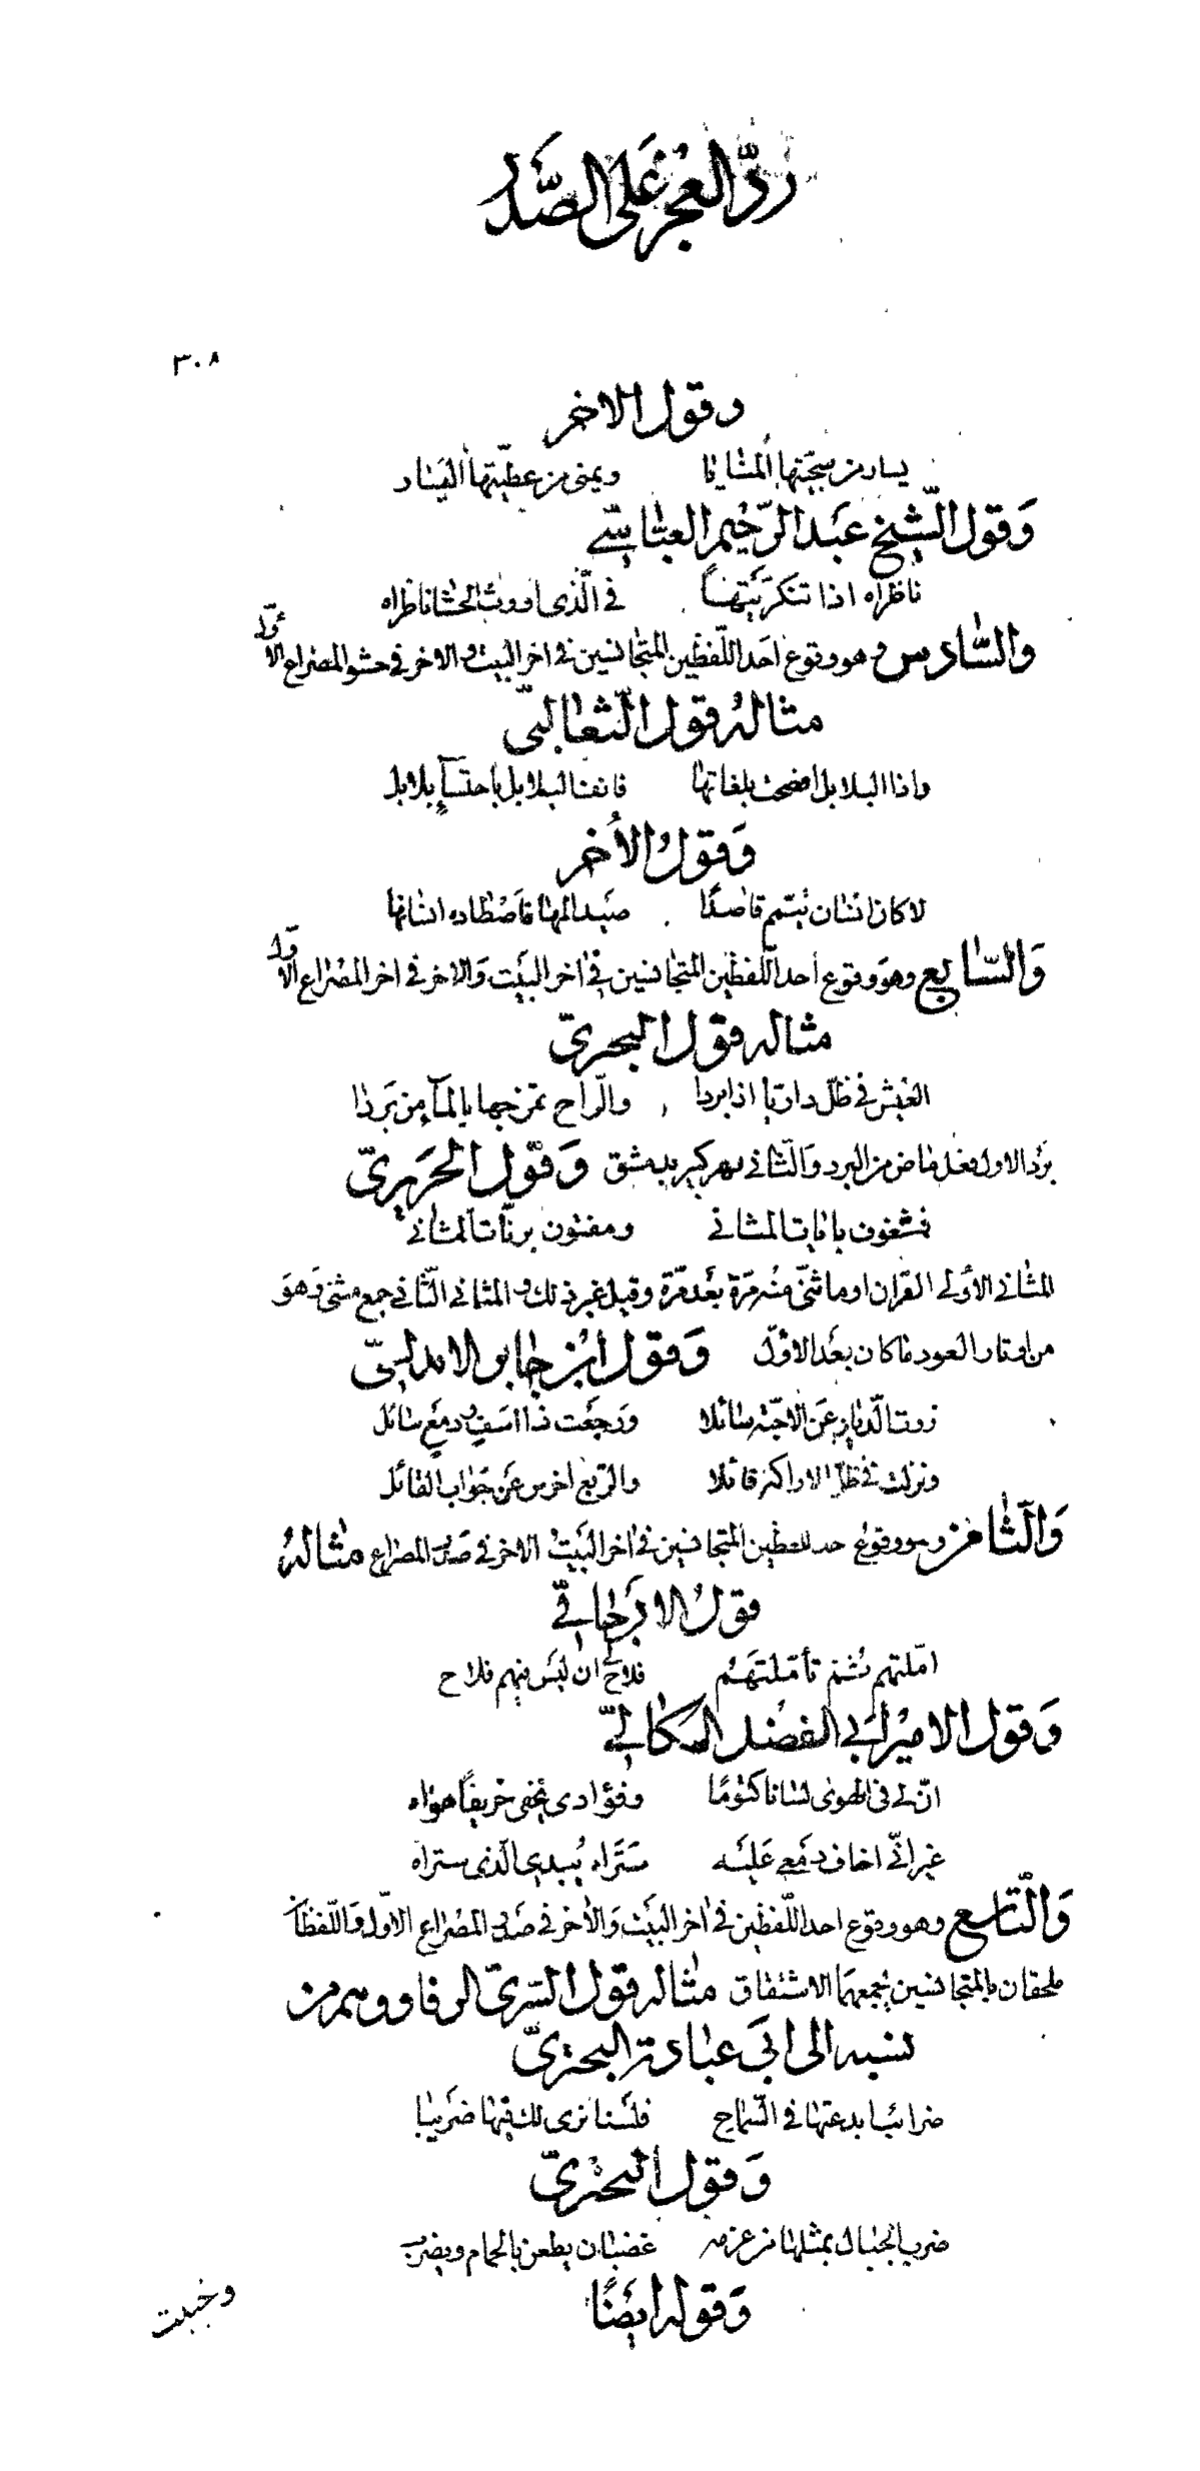 ردّ العجز على الصّدر
٣٠٨
وقول الاخر
يسار من سجيّتها المنايا ويمنى من عطيّتها اليسار
وَقول الشّيخ عبَد الرّحيم العبّاسّى
ناظراه اذا تنكرَيَتهِما في الّذى اورث الحشا ناظراه
والسّادس وهو وقوع احَد اللّفظين المتجانسين في اخر البيت والاخر في حشو المصراع الاوّل
مثالهُ قول الثّعالبّى
واذا البلابل افصحت بلغاتها فانف البلابل باحتسآءِ بلابل
وَقولُ الأخر
لا كان انسان تيّم قاصدًا صَيد المها فاَصْطاده انسانها
وَالسّابع وهوَ وقوع أحد اللّفظين المتجانسين في اخر البيَت وَالاخر في اخر المصْراع الاوّل
مثاله قول البحترىّ
العَيش في ظلّ داريّا اذا بردا والرّاح نمزجها بالمآءِ من بَردا
بَردا الاول فعل ماض من البرد وَالثّانى نهر كبير بدمشق وَقول الحَريرىّ
فمشغوف بايات المثانى ومفتون برنّات المثانى
المثانى الأولى القران او ما ثنّى منه مَرّة بعَد مَرّة وقيل غير ذلك والمثانى الثّانى جمع مثنى وَهوَ
من اوتار العود ما كان بعَد الاوّل وَقول ابن جابر الاندلسّى
زرت الّديار عَن الاحبّة سائلا وَرجعَت ذا اسَفٍ ودمعٍ سائل
ونزلت في ظلّ الاراكة قائلا والرّبع اخرس عَن جَواب القائل
وَالثّامن وهو وقوع احد اللفظين المتجانسين في اخر البيَت والاخر في صَدر المصراع مثالهُ
قولُ الارّجانّى
امّلتهم ثُمّ تأمّلتهَم فلاح ان ليَس فيهم فلاح
وَقول الامير ابَى الفضل الميكالّى
انّ لى فى الهوى لسانا كتومًا وفؤادى يخفى حَريق هواه
غير انّى اخاف دمَعى عَليَه سَتَراه يُبدى الّذى ستراه
وَالتّاسع وهو وقوع احد اللّفظين في اخر البيَت وَالاخر في صَدر المصْراع الاوّل وَاللّفظان
ملحقان بالمتجانسين يجمعهَما الاشتقاق مثاله قول السّرىّ الرفا ووهم من
نسبه الى ابَى عبادة البحترىّ
ضرائب ابدعتها في السّماح فلسَنا نرى لك فيها ضَريبا
وَقول البحترىّ
ضرب الجبال بمثلها من عزمه غضبان يطعن بالحمام ويضرب
وَقوله ايضًا
وخيبت